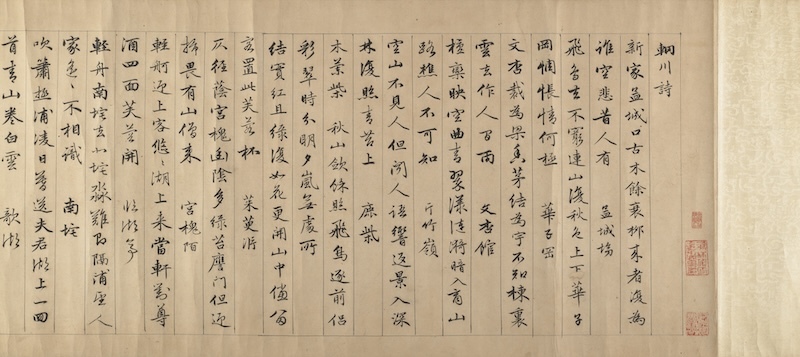 輞川詩
新家孟城口古木餘衰柳來者復為
誰空悲昔人有 孟城坳
飛鳥去不窮連山復秋色上下華子
岡惆悵情何極 華子岡
文杏裁為梁香茅結為宇不知棟裏
雲去作人間雨 文杏館
檀欒映空曲青翠漾漣漪暗入商山
路樵人不可知 斤竹嶺
空山不見人但聞人語響返景入深
林復照青苔上 鹿柴
木蘭柴 秋山斂餘照飛鳥逐前侶
彩翠時分明夕嵐無處所
結實紅且綠復如花更開山中儻留
客置此芙蓉杯 茱萸沜
仄徑蔭宮槐幽陰多綠苔應門但迎
掃畏有山僧來 宮槐陌
輕舸迎上客悠々湖上來當軒對尊
酒四面芙蓉開 臨湖亭
輕舟南垞去北垞淼難即隔浦望人
家遙々不相識 南垞
吹簫極浦凌日暮送夫君湖上一回
首青山卷白雲 欹湖